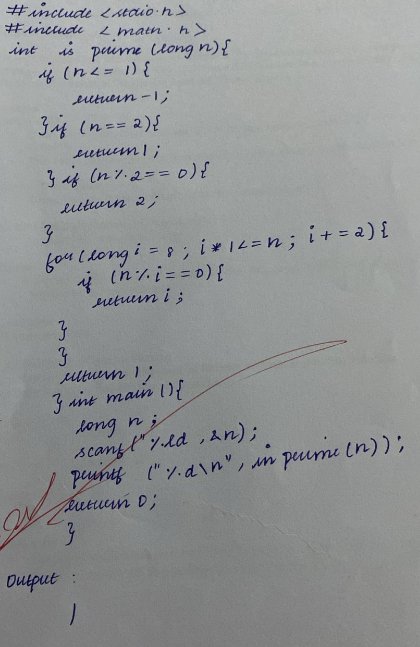 #include <stdio.n>
#include <math.n>
int is prime (long n){
if (n<= 1){
return -1;
}if (n == 2){
return 1;
} if (n %.2 == 0){
return 2;
}
for (long i = 8; i * 1<= n; i += 2){
if (n%.i==0){
return i;
}
}
return 1;
} int main (){
long n;
scanf("%.ld ,&n);
printf ("%.d\n", in prime(n));
return 0;
}
Output :
1